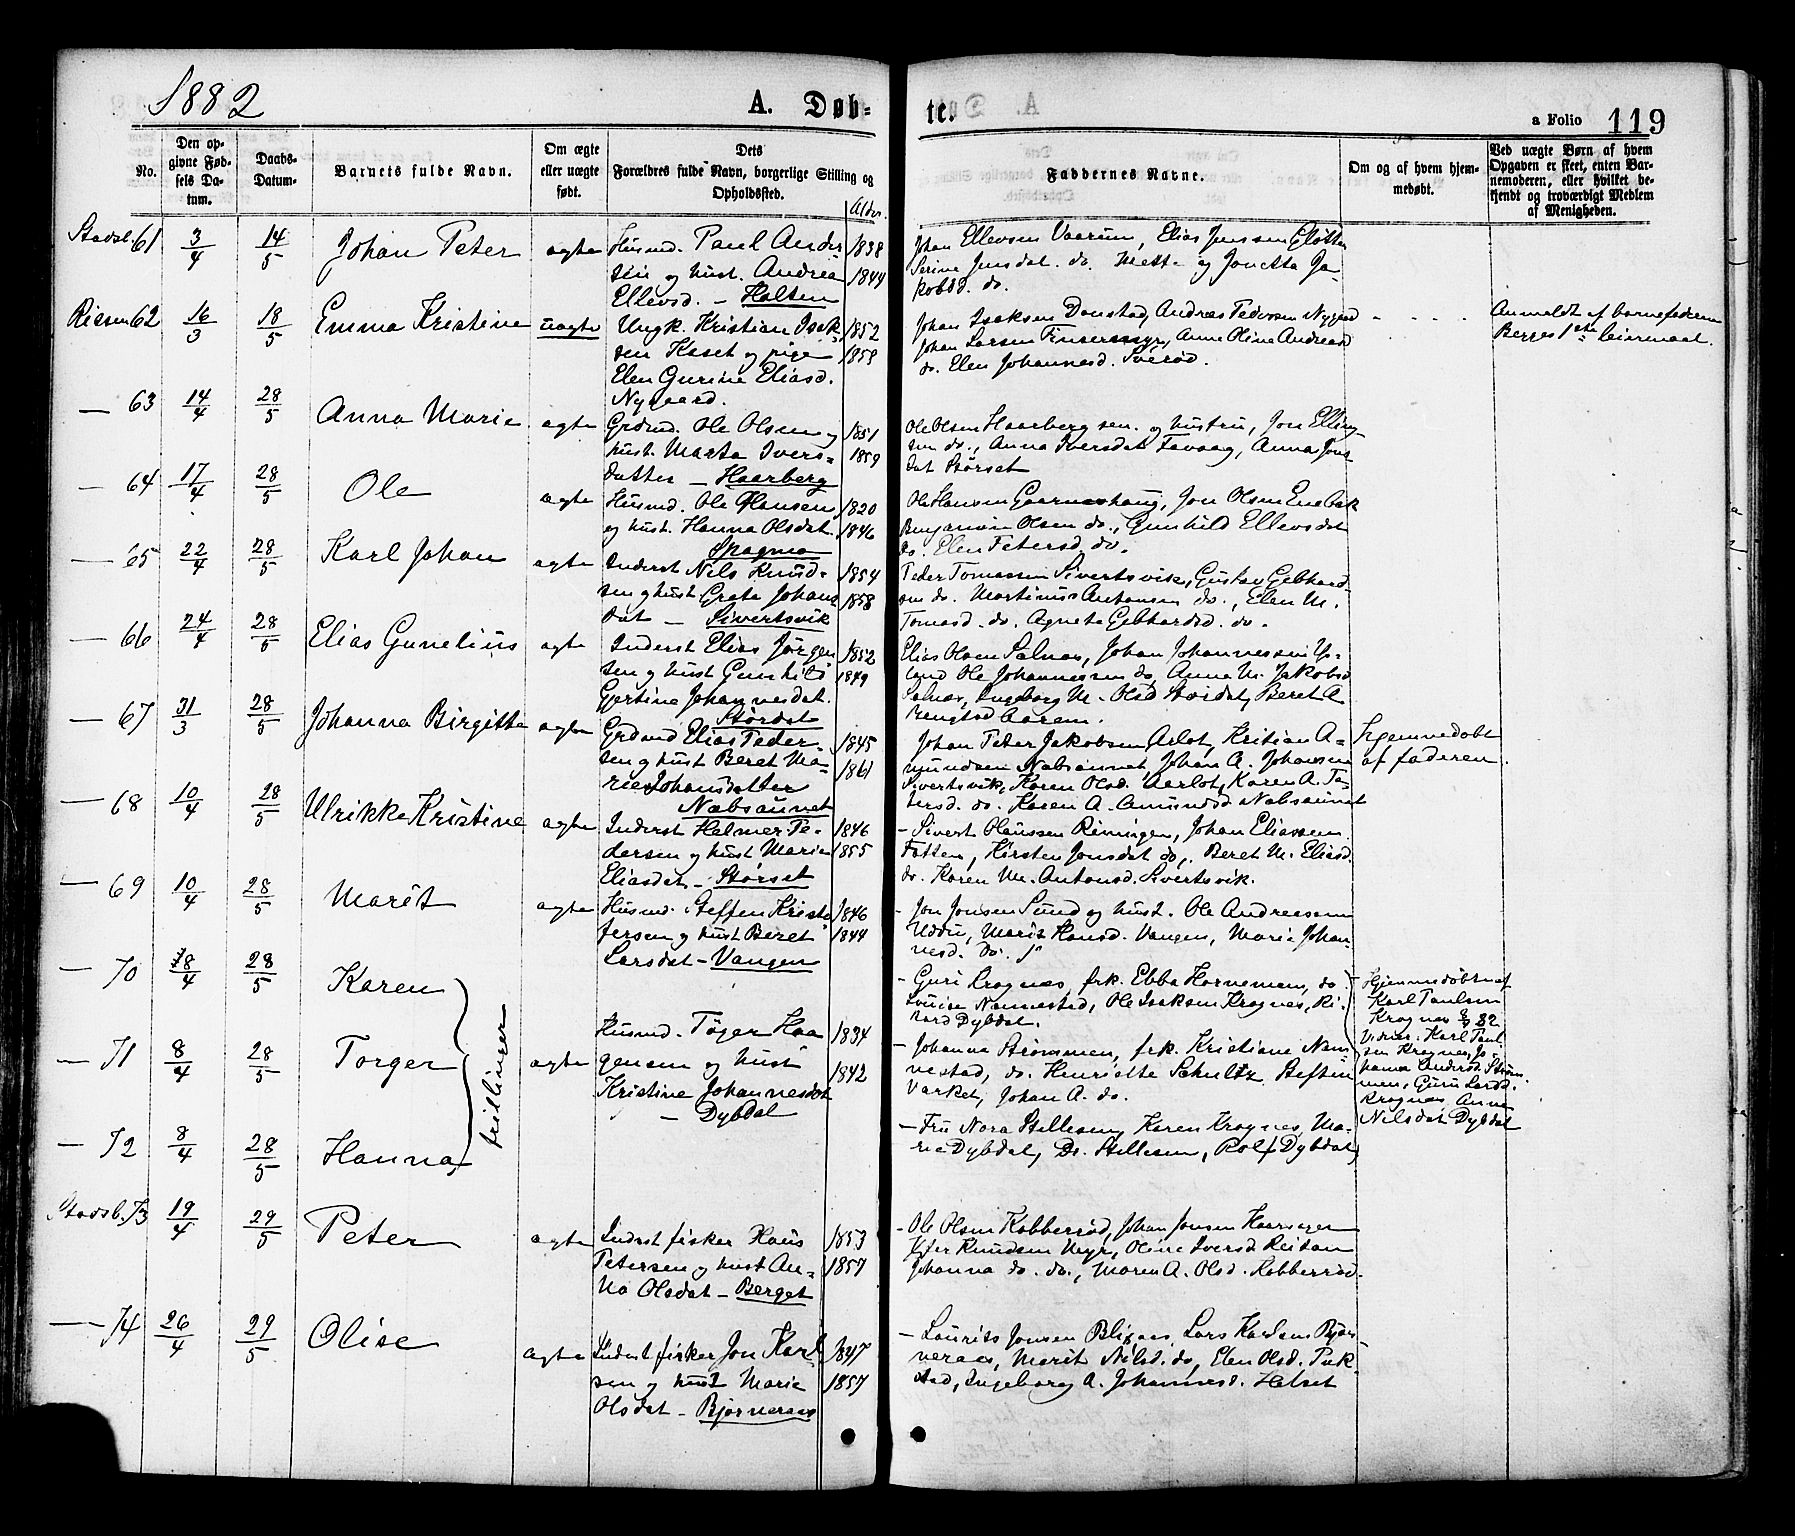 1882
A. Døb-
te.
a Folio 119
No.
Den op-
givne Fød-
sels Da-
tum.
Daabs-
Datum.
Barnets fulde Navn.
Om ægte
eller uægte
født.
Dets
Forældres fulde Navn, borgerlige Stilling og
Opholdssted.
Alder.
Faddernes Navne.
Om og af hvem hjem-
medøbt.
Ved uægte Børn af hvem
Opgaven er skeet, enten Bar-
nemoderen, eller hvilket be-
kjendt og troværdigt Medlem
af Menigheden.
Stadsb. 61 3/4 14/5 Johan Peter ægte
Husmd. Paul Ander 1838
sen og hust. Andrea 1844
Ellevsd. – Holten
Johan Ellevsen Vaarum, Elias Jenssen Sløtten
Serine Jensdat. do. Mette og Jonetta Ja-
kobsd. do.
Rissen 62 16/3 18/5 Emma Kristine uægte
Ungk. Kristian Isak 1852
sen Kaset og pige 1858
Elen Gurine Eliasd.
Nygaard.
Johan Isaksen Danstad, Andreas Pedersen Nygaard
Johan Larsen Finsermyr, Anne Oline Andreasd
do. Elen Johannesd. Sverød.
Anmeldt af barnefaderen
Begges 1ste leiermaal.
— 63 14/4 28/5 Anna Marie ægte
Grdmd. Ole Olsen og 1851
hust. Marta Ivers- 1859
datter – Haarberg
Ole Olsen Haarberg sen. og hustru, Jon Elling-
sen do., Anna Iversdat Fævaag, Anna Jons
dat Børset
— 64 17/4 28/5 Ole ægte
Husmd. Ole Hansen 1820
og hust. Hanna Olsdat. 1846
Skagmo
Ole Hansen Gaarneshaug, Jon Olsen Enebak
Benjamin Olsen do., Gunhild Ellevsdat
do. Elen Petersd. do.
— 65 22/4 28/5 Karl Johan ægte
Inderst Nils Knud- 1854
sen og hust Greta Johans 1858
dat – Sivertsvik
Peder Tomassen Sivertsvik, Gustav Gebhard-
sen do. Martinus Antonsen do., Elen M.
Tomasd. do. Agneta Gebhardsd. do.
— 66 24/4 28/5 Elias Gunelius ægte
Inderst Elias Jørgen 1852
sen og hust Gunhild 1849
Gjertine Johannesdat.
Stordat
Elias Olsen Salnæs, Johan Johannessen
land Ole Johannessen do, Anne M. Jakobsd
Salnæs, Ingeborg M. Olsd Beret A
Bengtsd Aarem.
— 67 31/3 28/5 Johanna Birgitte ægte
Grdmd Elias Peder- 1845
sen og hust Beret Ma- 1861
rie Johansdatter
Næbsaunet
Johan Peter Jakobsen Arlot, Kristian A-
mundsen Næbsaunet Johan A. Johansen
Sivertsvik, Karen Olsd. Aerlot, Karen A. Pe-
tersd. do. Karen A. Amundsd Næbsaunet
Hjemmedøbt
af faderen.
— 68 10/4 28/5 Ulrikke Kristine ægte
Inderst Helmer Pe- 1846
dersen og hust Marie 1855
Eliasdat – Størset
– Sivert Olaussen Reningen, Johan Eliassen
Fatten, Kirsten Jonsdat do., Beret M. Eliasd.
do. Karen M. Antonsd. Sivertsvik.
— 69 10/4 28/5 Marit ægte
Husmd. Steffen Kristo 1846
fersen og hust Beret 1844
Larsdat – Vangen
– Jon Jonsen Sund og hust. Ole Andreassen
Uddu, Marit Hansd. Vangen, Marie Johan-
nesd. do.
— 70 8/4 28/5 Karen
– Guri Kragnæs, frk. Ebba Hornemann, do
Louise Nannestad, Ole Isaksen Kragnæs, Ri-
kard Dybdat.
Hjemmedøbt af
Karl Paulsen
Kragnæs 8/4 82
Vidner: Karl Paul
sen Kragnæs, Jo-
hanna Anderst. Strøm
men, Guru Larsd.
Kragnæs Anna
Nilsdat Dybdat
trillinger
— 71 8/4 28/5 Torger ægte
Husmd. Tøger Haa 1834
gensen og hust
Kristine Johannesdat 1842
– Dybdat
– Johanna Strømmen, frk. Kristiane Nan-
nestad, do. Henriette Schultz Steffen
Varket, Johan A. do.
— 72 8/4 28/5 Hanna
– Fru Nora Stillesen, Karen Kragnes, Ma-
rie Dybdat, Dr. Stillesen, Rolf Dybdat
Stadsb. 73 19/4 29/5 Peter ægte
Inderst fisker Hans 1853
Petersen og hust An- 1857
na Olsdat – Berget
– Ole Olsen Kobberrød, Johan Jonsen Haarsager
Peter Knudsen Myr, Oline Iversd Reitan
Johanna do. do., Maren A. Olsd. Kobberrød.
— 74 26/4 29/5 Olise ægte
Inderst fisker Jon Karl 1847
sen og hust Marie 1857
Olsdat – Bjørneraas
– Laurits Jonsen Blixaas, Lars Karlsen Bjør-
neraas, Marit Nilsd. do, Elen Olsd. Puk-
stad, Ingeborg A. Johannesd. Helset